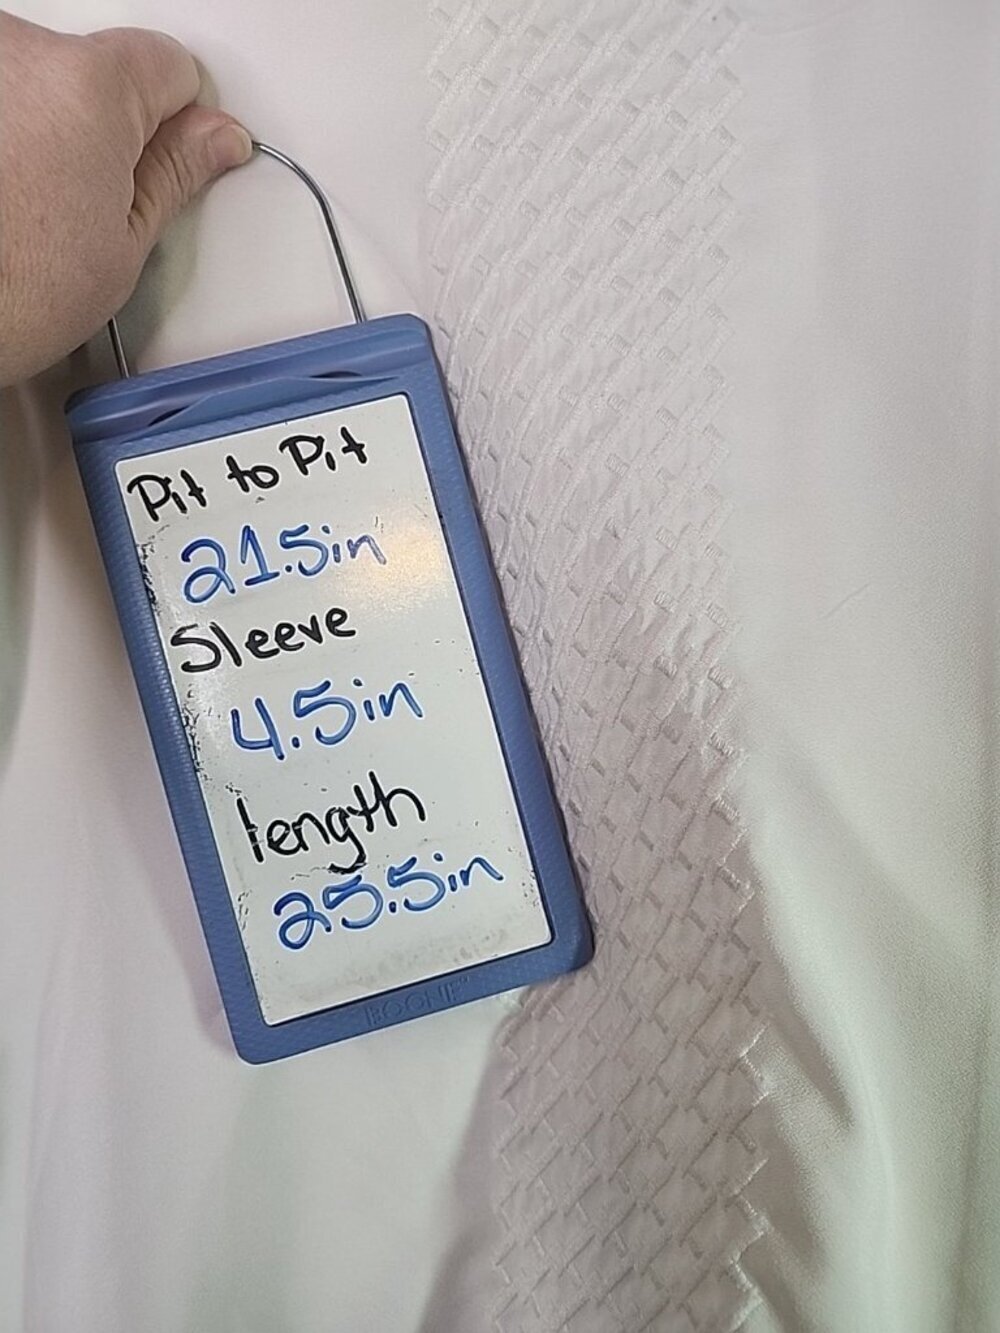 Pit to Pit
21.5in
Sleeve
4.5in
length
25.5in
BOONE